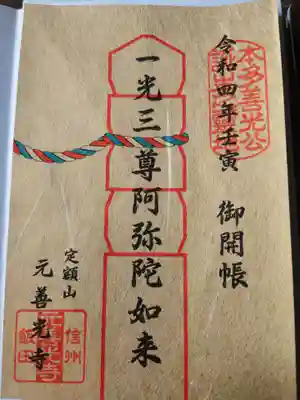 本多善光公
令和四年壬寅 御開帳
一光三尊阿弥陀如来
定額山
元善光寺
信州
飯田
元善光寺